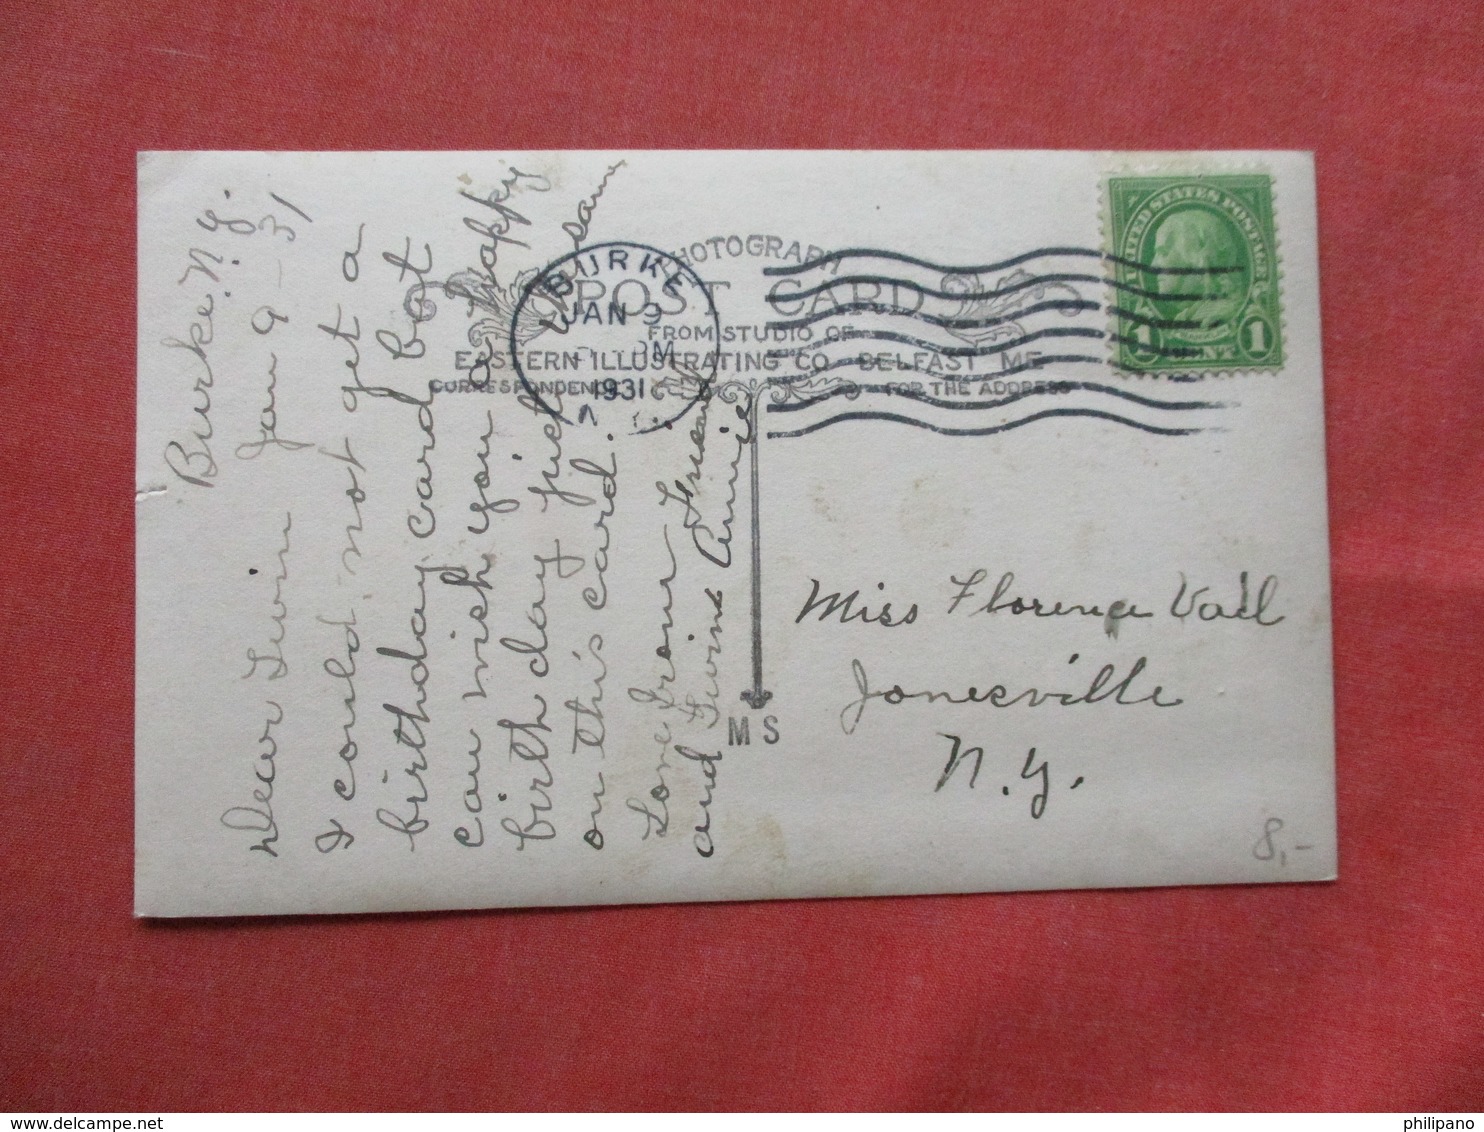 Burke N.Y.
Jan 9 - 31
Dear Twin
I could not get a
birthday card but
can wish you a happy
birth day just the same
on this card.
Love from Friend
and Twins Annie
BURKE
JAN 9
PM
1931
N.Y.
PHOTOGRAPH
POST CARD
FROM STUDIO OF
EASTERN ILLUSTRATING CO BELFAST ME
CORRESPONDENCE FOR THE ADDRESS
M S
UNITED STATES POSTAGE
1 CENT 1
Miss Florence Vail
Jonesville
N.Y.
8,-
philipano